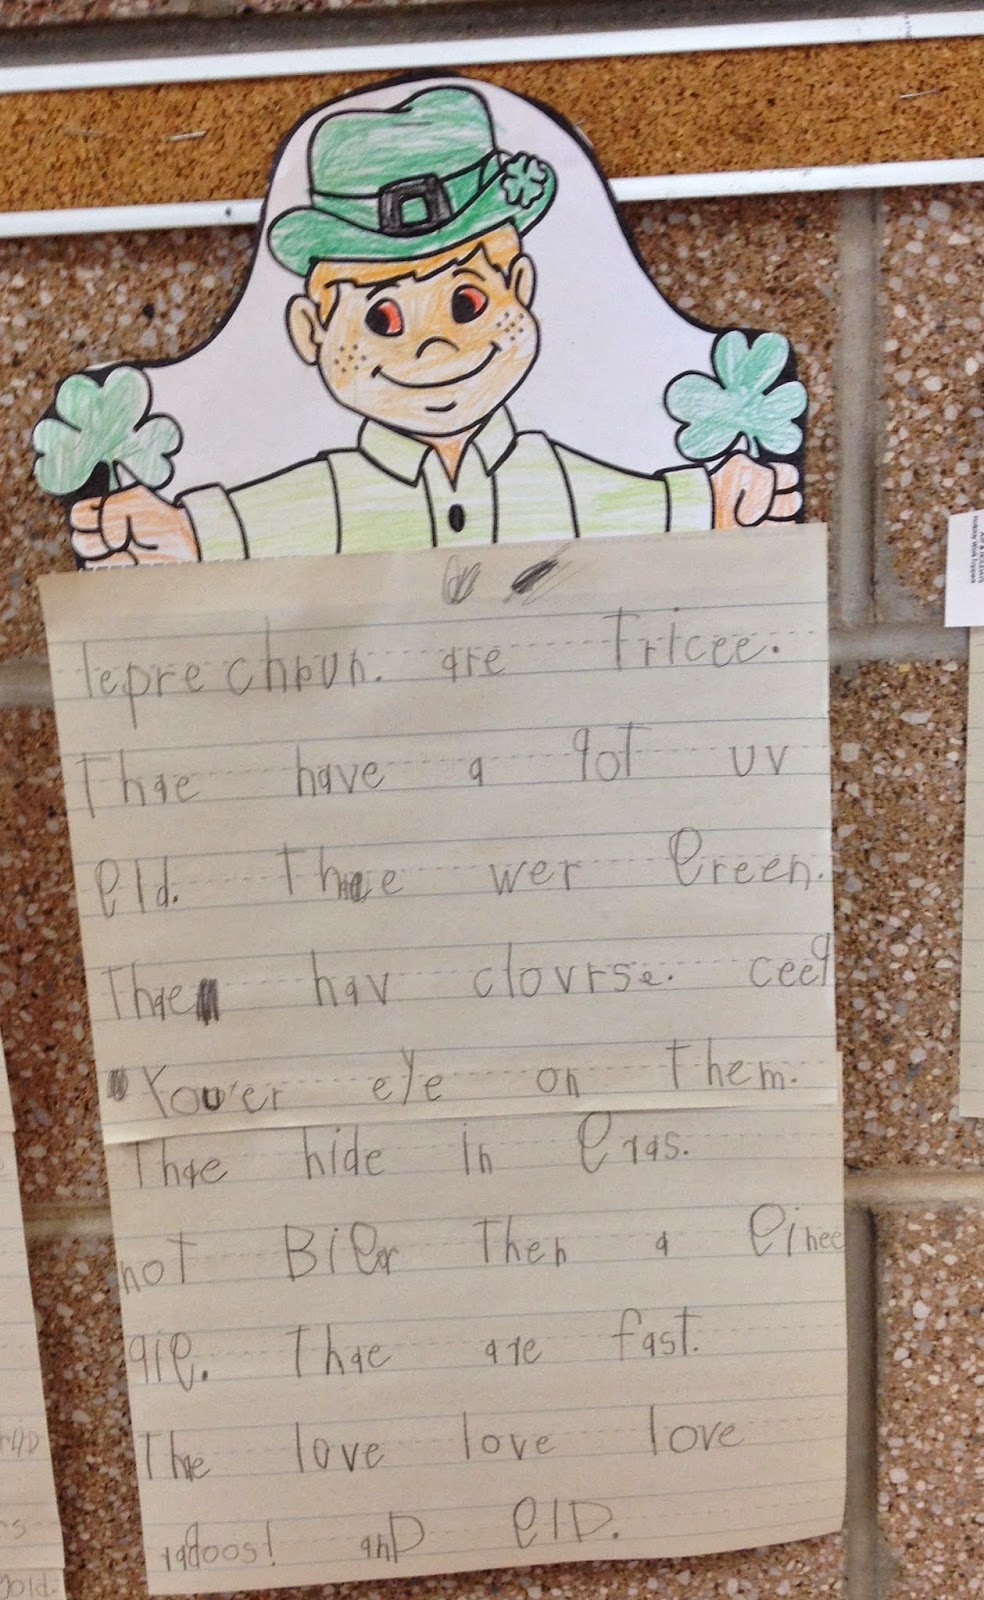 leprechpun. are Tricee.
Thae have a lot uv
gld. Thae wer Green.
Thae hav clovrse. ceep
You'er eye on Them.
Thae hide in Gras.
not Biger Then a Ginee
pig. Thae are fast.
The love love love
radoos! and glD.
gold.